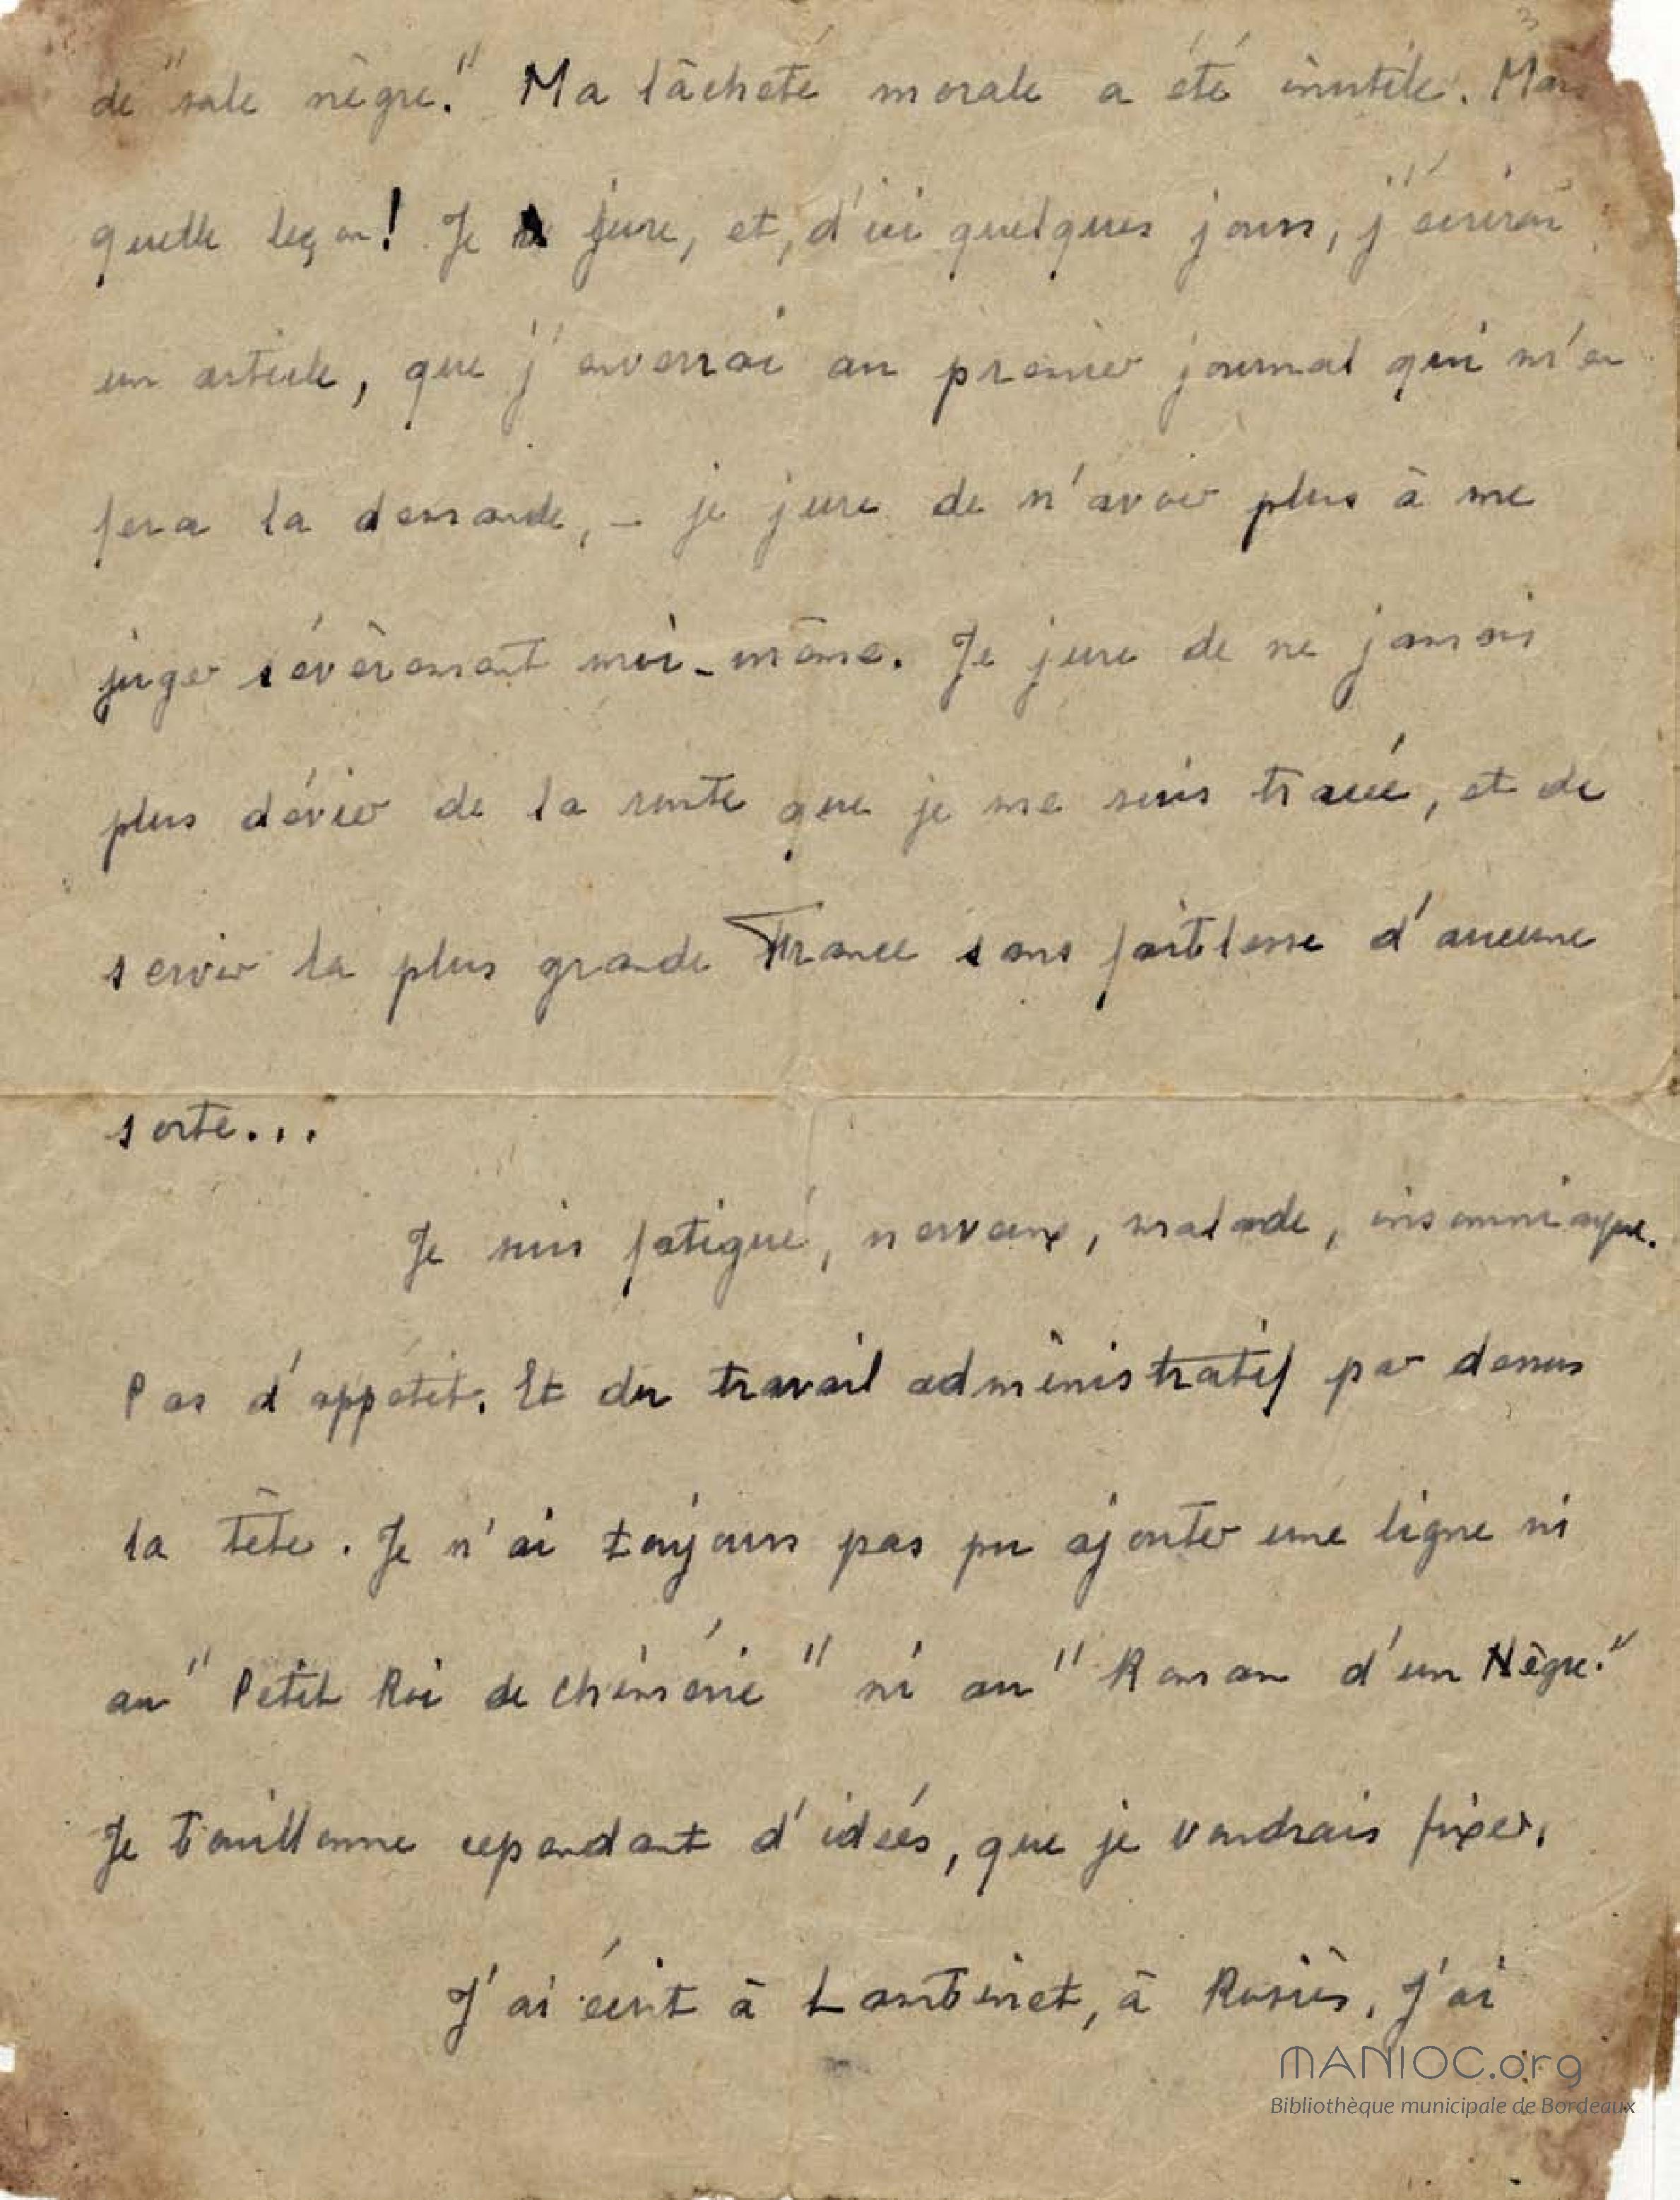 3
de "sale nègre." Ma lâcheté morale a été inutile. Mais
quelle leçon! Je jure, et, d'ici quelques jours, j'écrirai
un article, que j'enverrai au premier journal qui m'en
fera la demande, - je jure de n'avoir plus à me
juger sévèrement moi-même. Je jure de ne jamais
plus dévier de la route que je me suis tracée, et de
servir la plus grande France sans faiblesse d'aucune
sorte...
Je suis fatigué, nerveux, malade, insomniaque.
Pas d'appétit. Et du travail administratif par dessus
la tête. Je n'ai toujours pas pu ajouter une ligne ni
au "Petit Roi de Chimérie" ni au "Roman d'un Nègre."
Je bouillonne cependant d'idées, que je voudrais fixer.
J'ai écrit à Lambinet, à Rosiès. J'ai
MANIOC.org
Bibliothèque municipale de Bordeaux